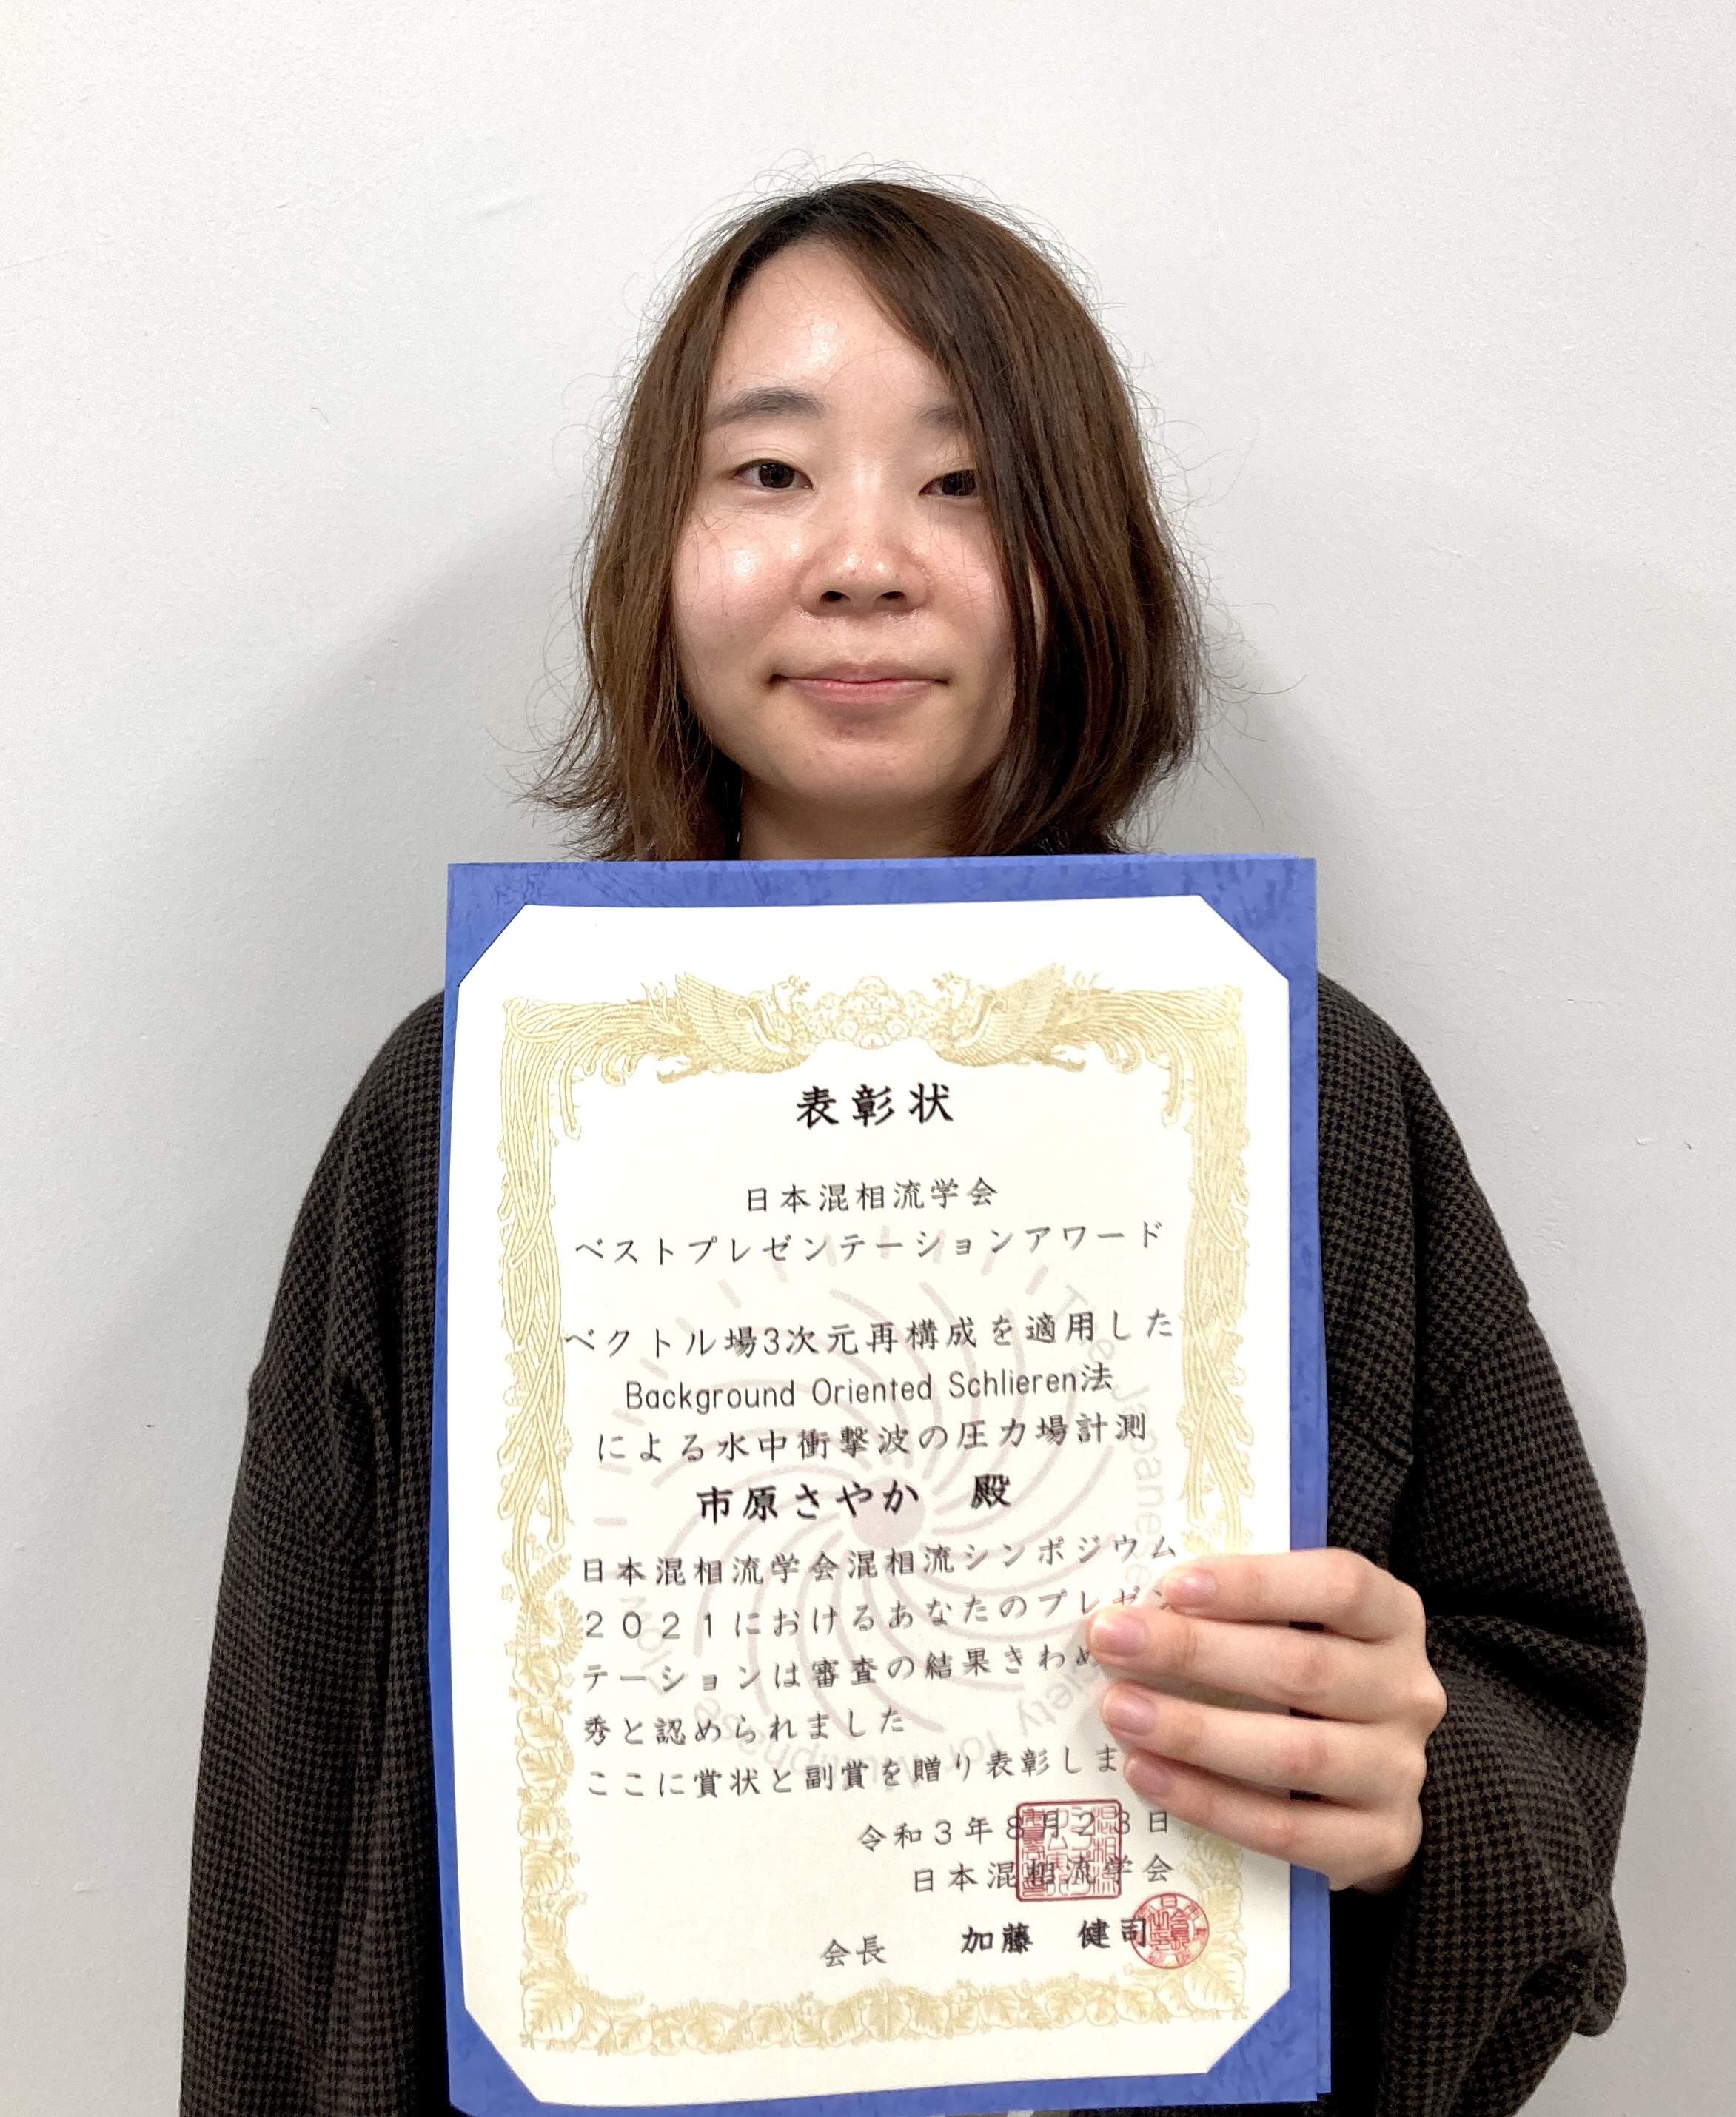 表彰状
日本混相流学会
ベストプレゼンテーションアワード
ベクトル場3次元再構成を適用した
Background Oriented Schlieren法
による水中衝撃波の圧力場計測
市原さやか 殿
日本混相流学会混相流シンポジウム
2021におけるあなたのプレゼン
テーションは審査の結果きわめ
秀と認められました
ここに賞状と副賞を贈り表彰しま
令和3年8月23日
日本混相流学会
会長 加藤 健司